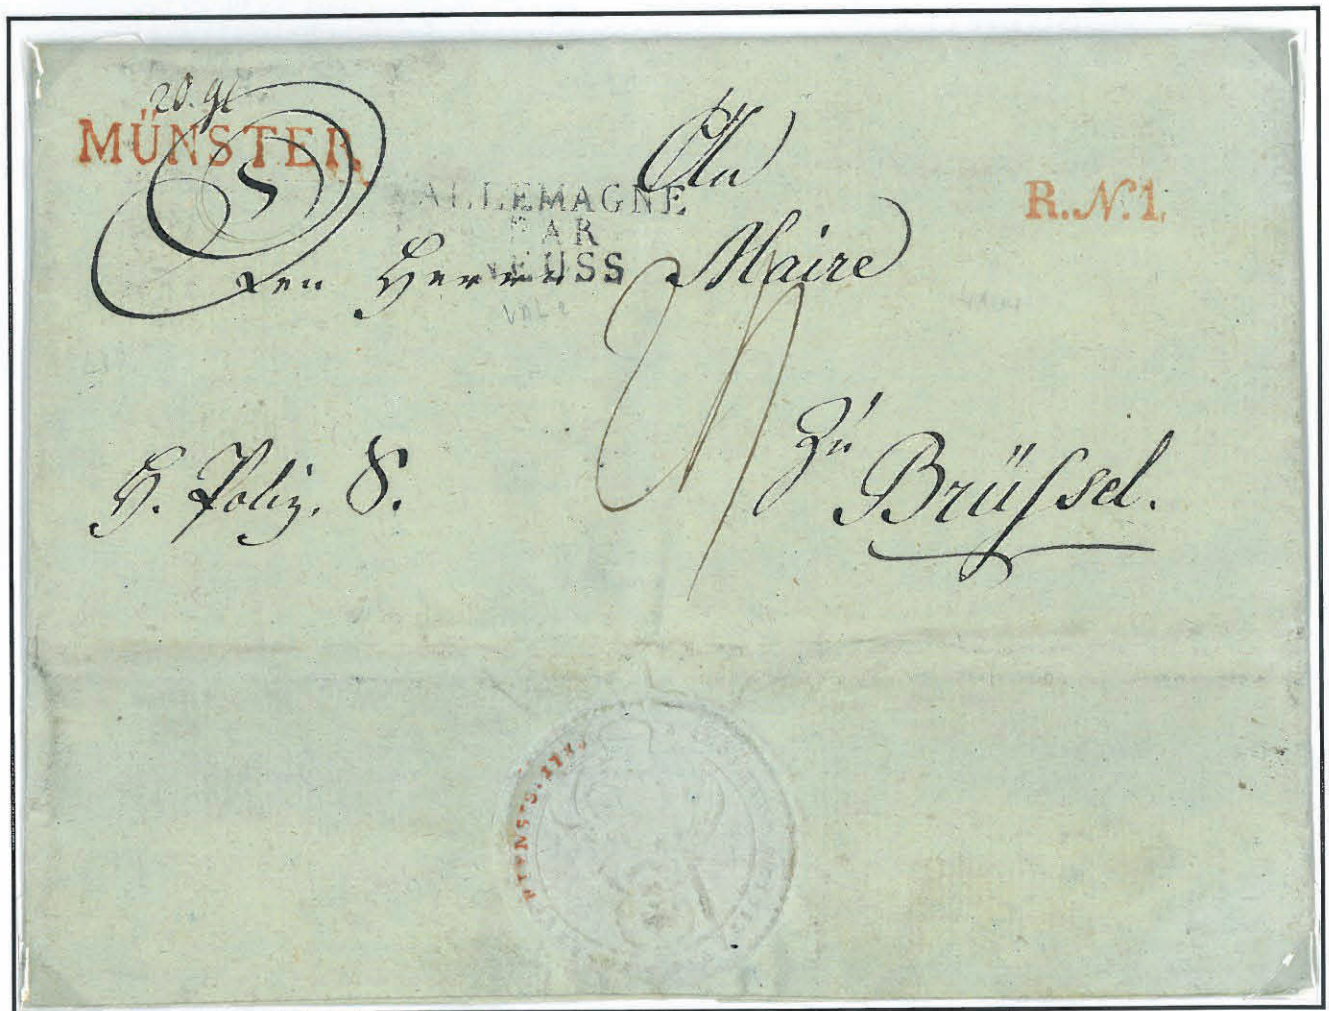 MÜNSTER
ALLEMAGNE
PAR
NEUSS
R.N.1.
An
den Herrn Maire
H. Poliz. S.
Zu
Brüssel.